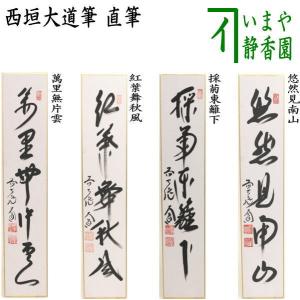 西垣大道筆 直筆
いまや
静香園
萬里無片雲
萬里無片雲
紅葉舞秋風
紅葉舞秋風
採菊東籬下
採菊東籬下
悠然見南山
悠然見南山